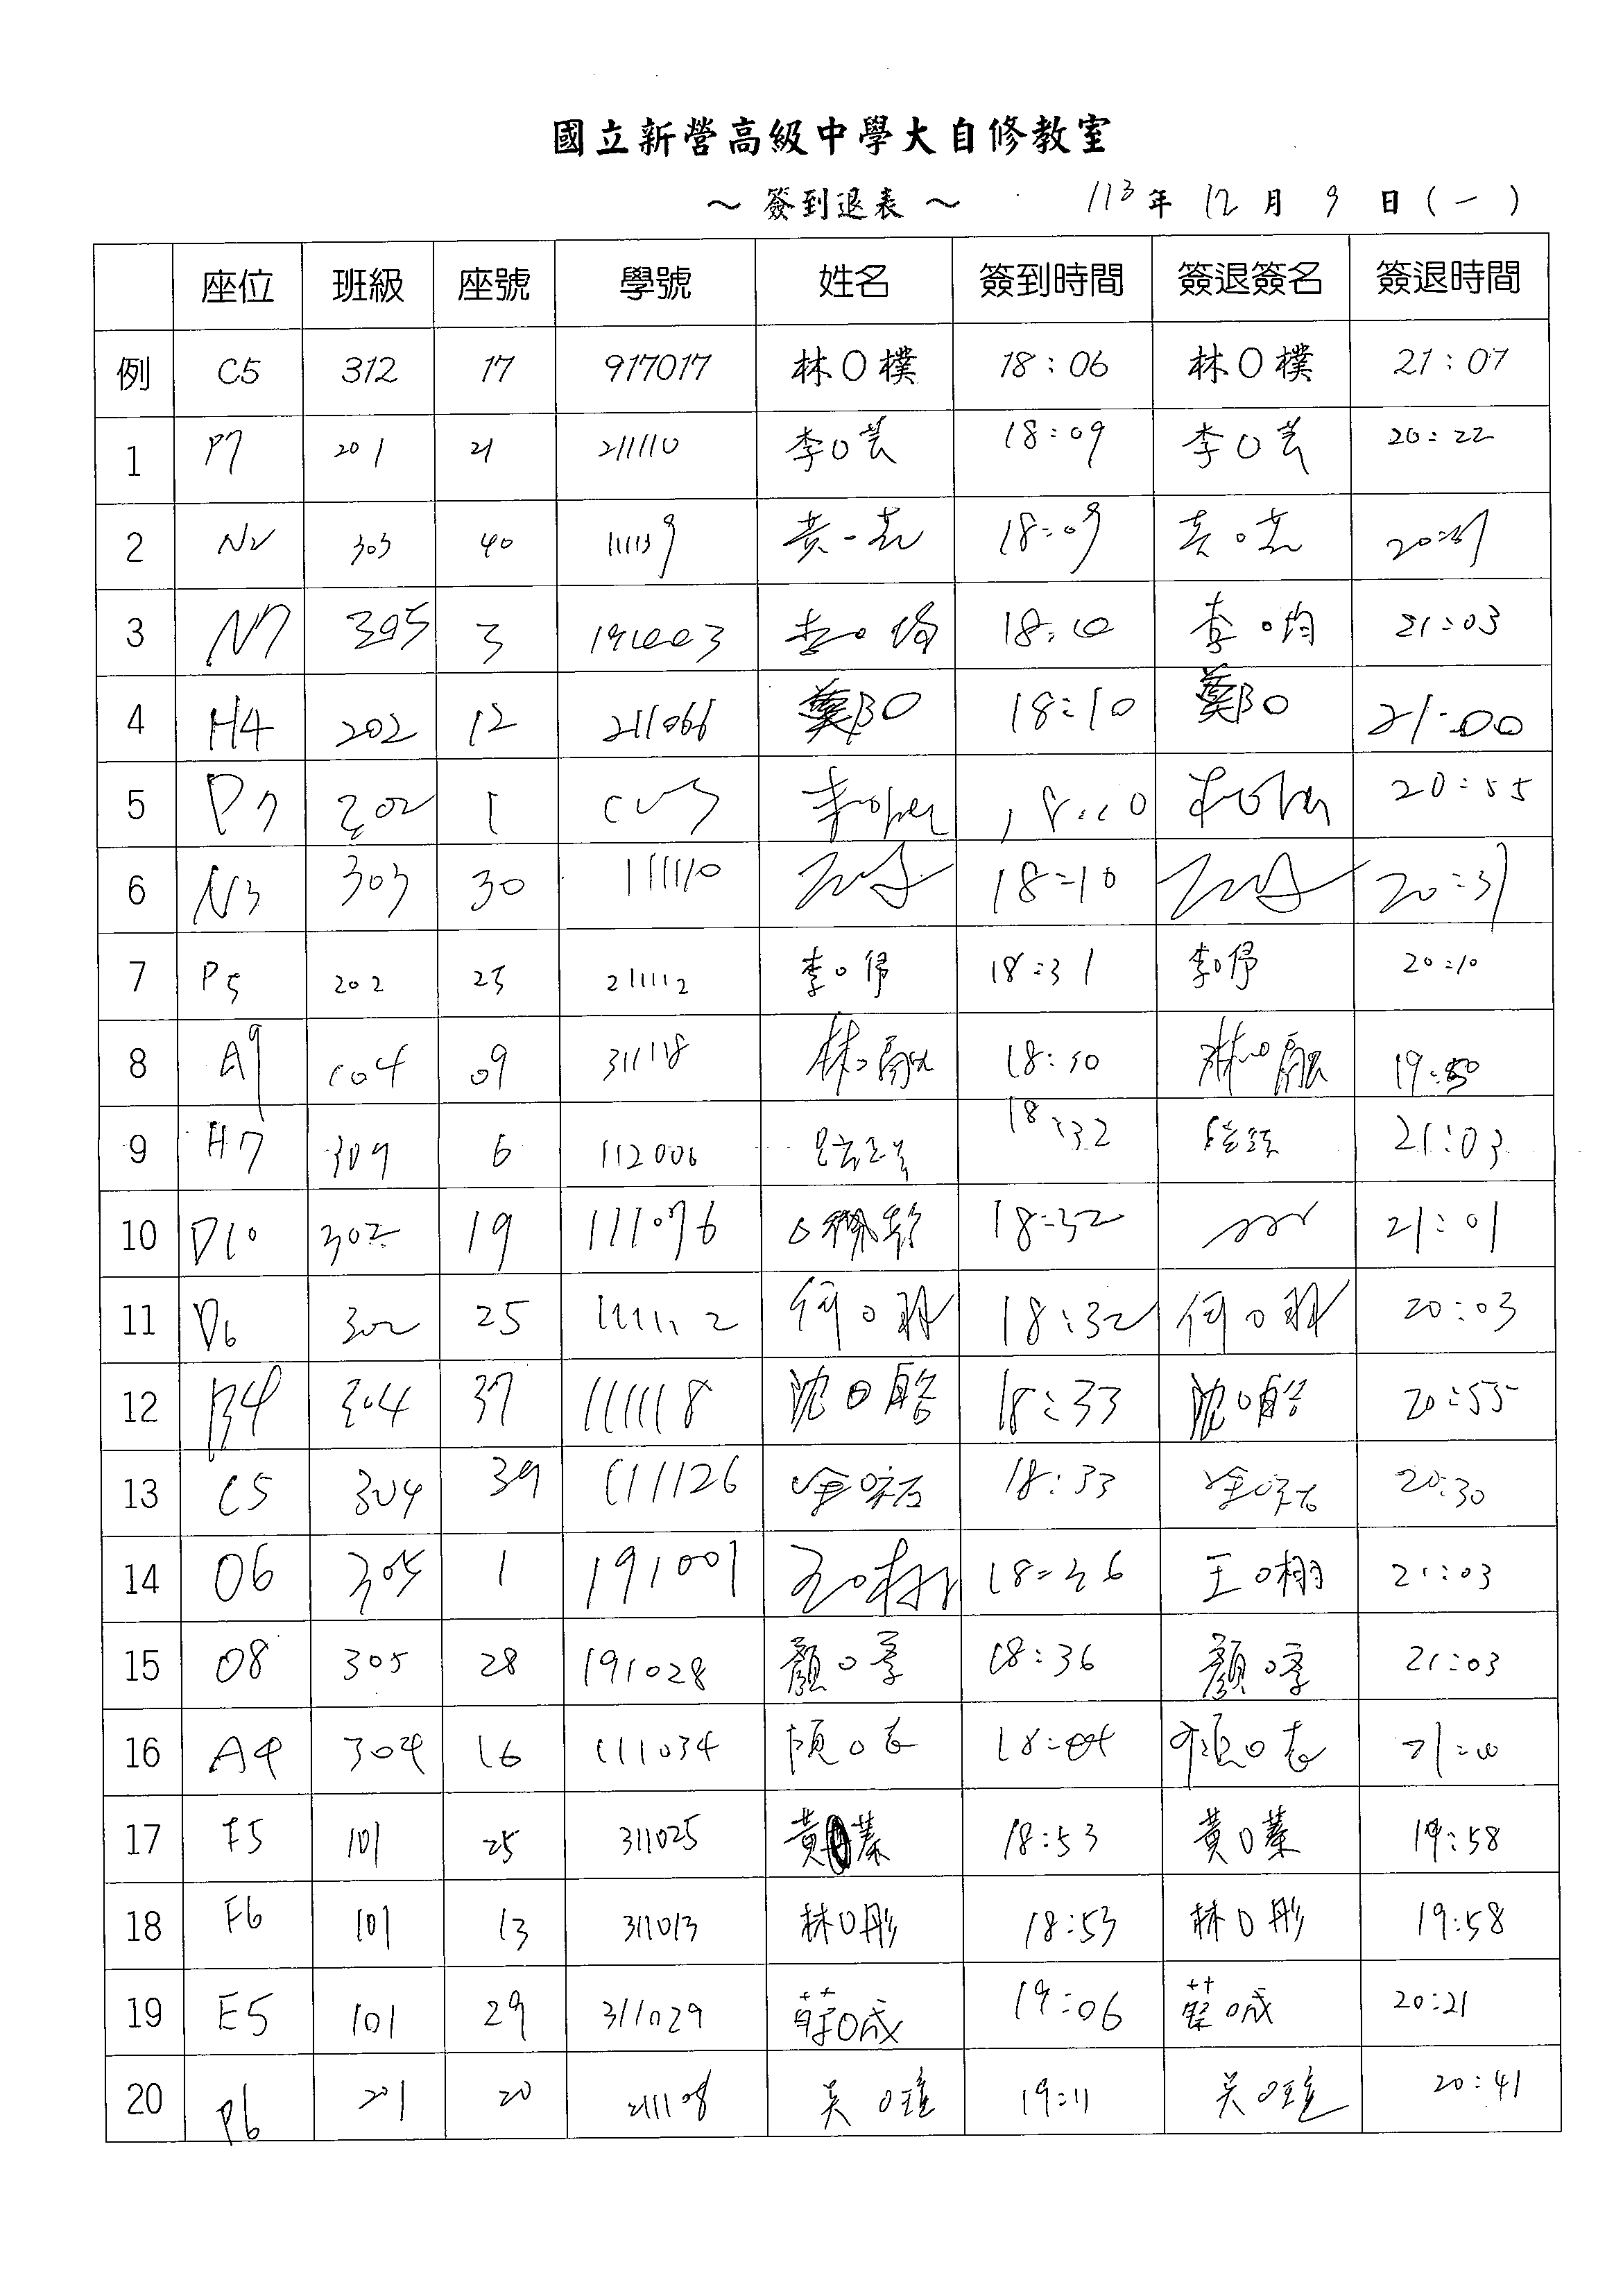 國立新營高級中學大自修教室
～ 簽到退表 ～ 113 年 12 月 9 日 (一)
座位 班級 座號 學號 姓名 簽到時間 簽退簽名 簽退時間
例 C5 312 17 917017 林O樸 18:06 林O樸 21:07
1 P7 201 21 211110 李O芸 18:09 李O芸 20:22
2 N2 303 40 18:09 
3 N7 305 3 18:10 李O均 21:03
4 H4 202 12 211066 鄭O 18:10 鄭O 21:00
5 P7 202 1 18:10 20:55
6 N3 303 30 111110 18:10 20:31
7 P5 202 25 211112 李O 18:31 李O 20:10
8 A9 104 09 311118 林O 18:30 林O 
9 H7 309 6 112006 18:32 21:03
10 D10 302 19 111076 18:32 21:01
11 D6 302 25 111112 何O 18:32 何O 20:03
12 B4 304 37 111118 沈O皓 18:33 沈O皓 20:55
13 C5 304 39 111126 18:33 20:30
14 O6 305 1 191001 王O栩 18:36 王O栩 21:03
15 O8 305 28 191028 顏O 18:36 顏O 21:03
16 A4 304 16 111034 
17 F5 101 25 311025 黃O蓁 18:53 黃O蓁 19:58
18 F6 101 13 311013 林O彤 18:53 林O彤 19:58
19 E5 101 29 311029 19:06 20:21
20 P6 201 20 211108 吳O瑄 19:11 吳O瑄 20:41